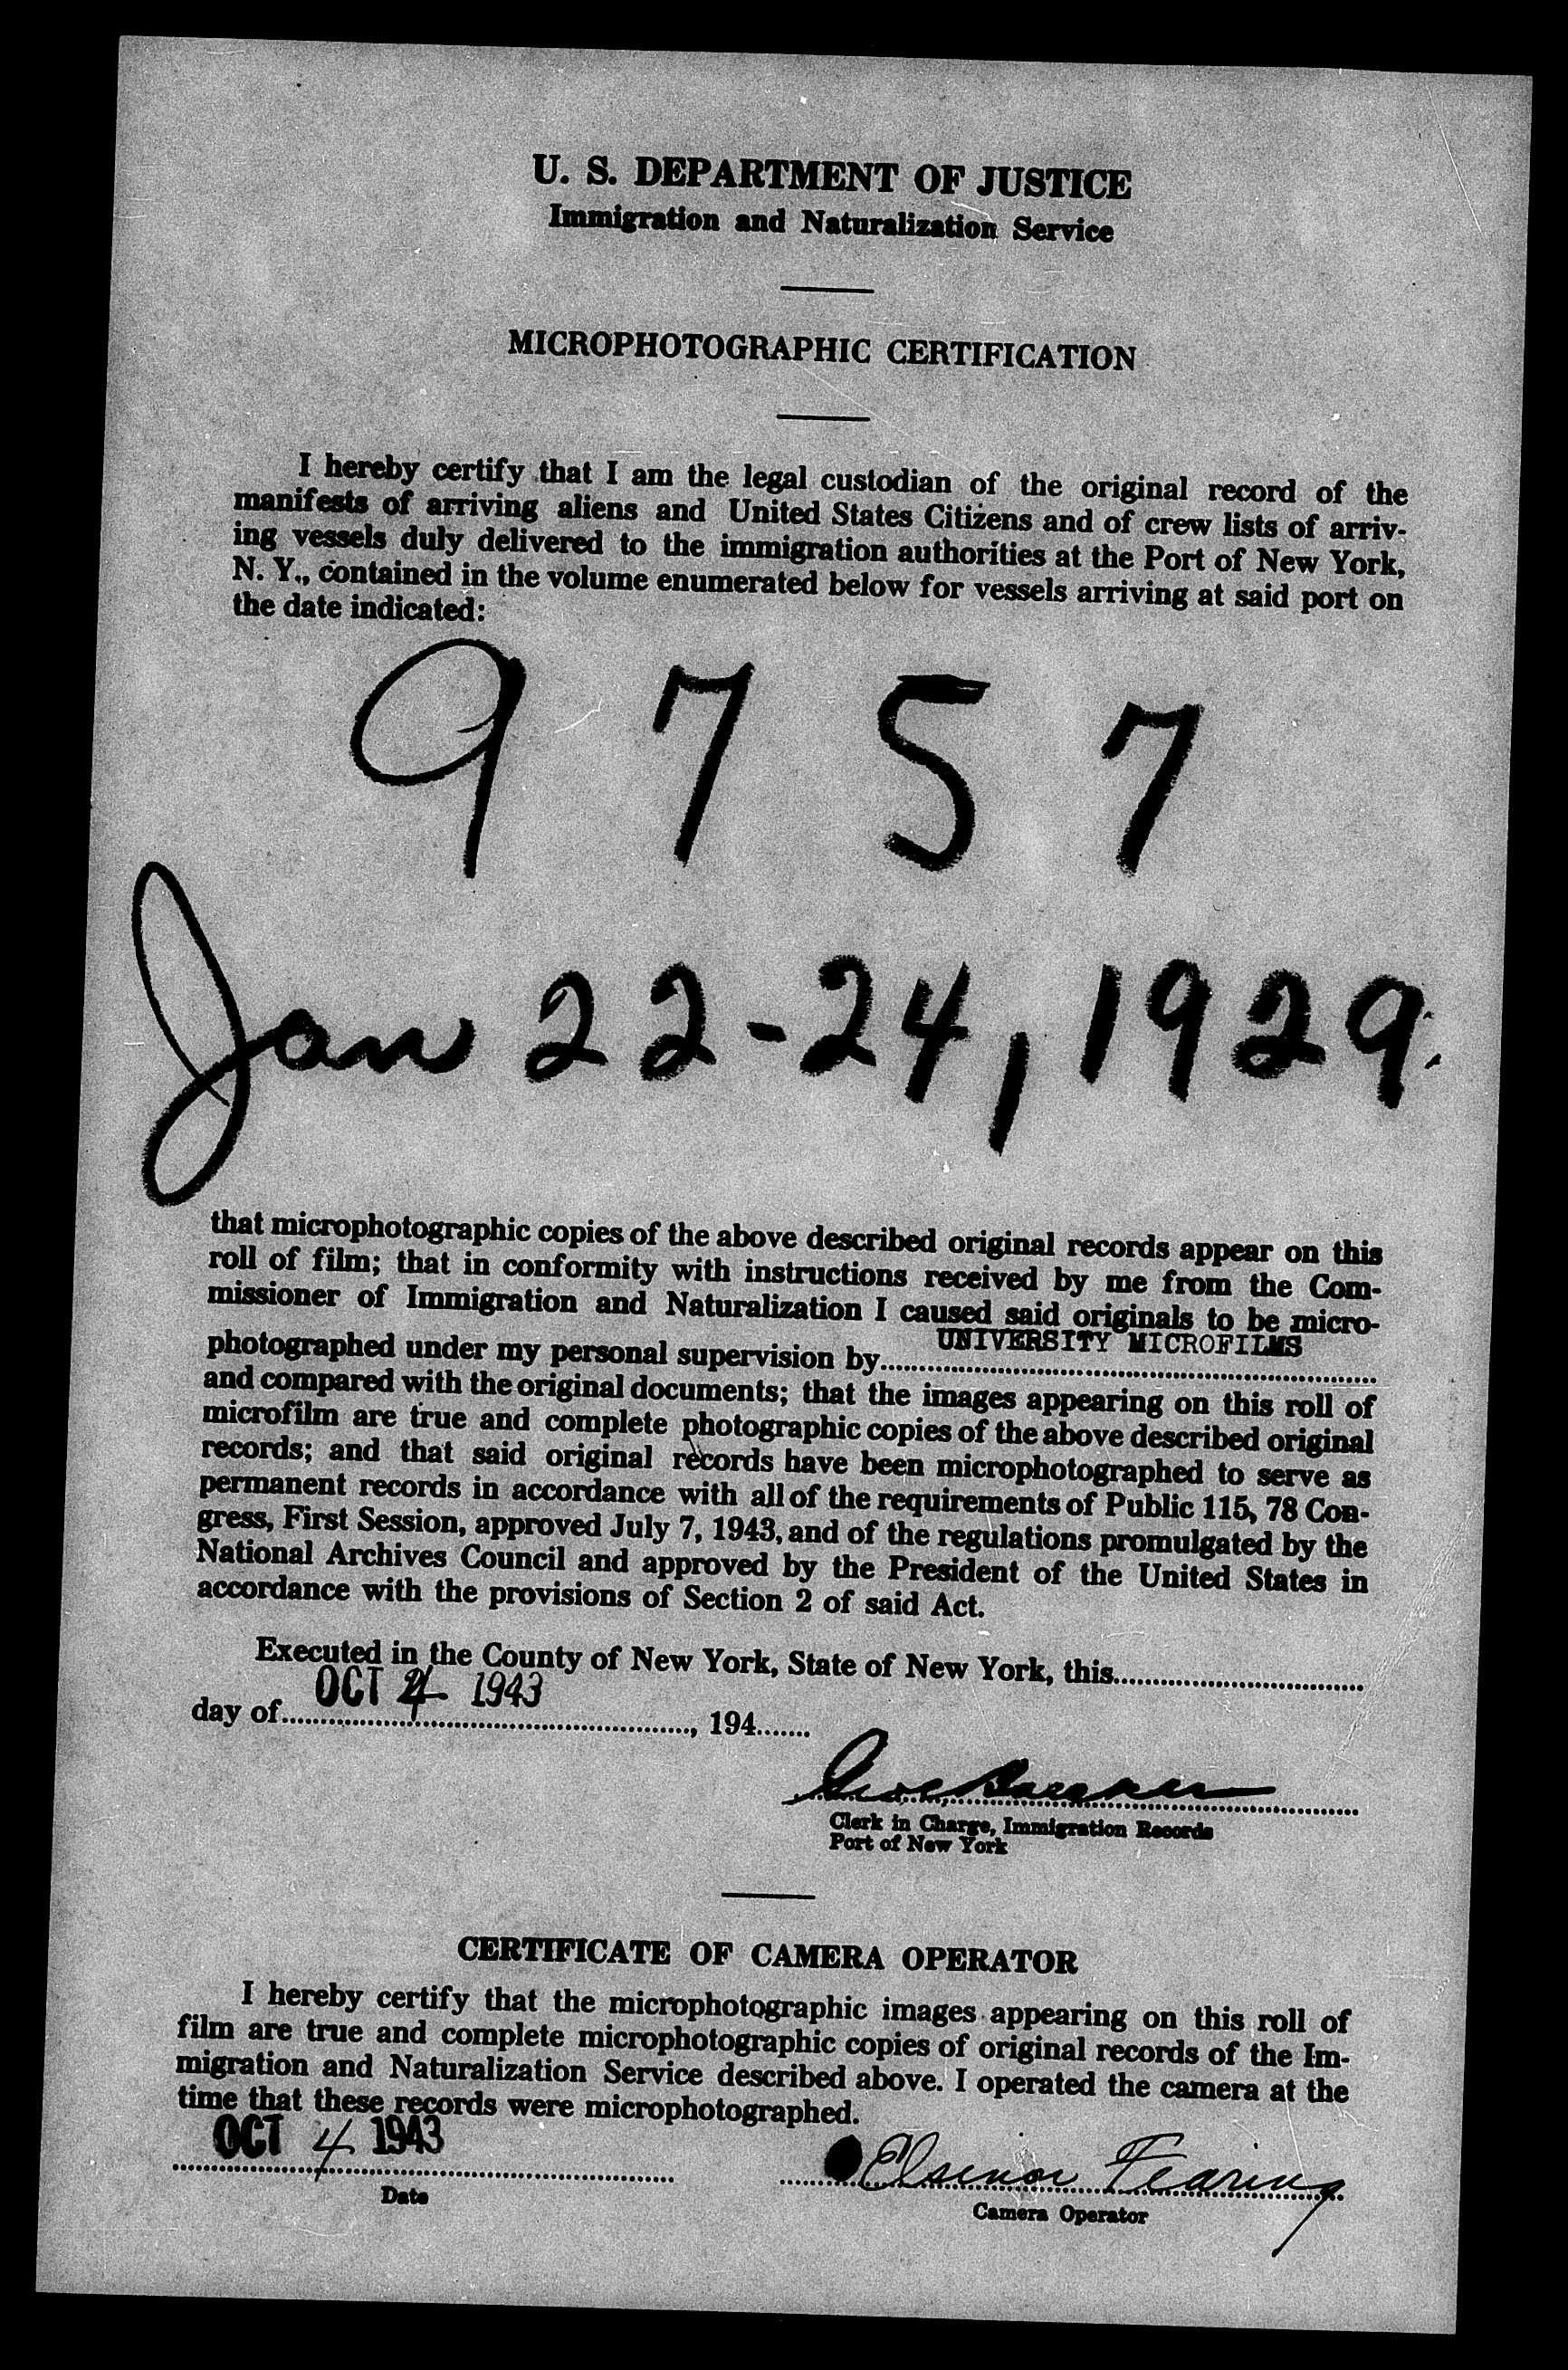 U. S. DEPARTMENT OF JUSTICE
Immigration and Naturalization Service
MICROPHOTOGRAPHIC CERTIFICATION
I hereby certify that I am the legal custodian of the original record of the
manifests of arriving aliens and United States Citizens and of crew lists of arriv-
ing vessels duly delivered to the immigration authorities at the Port of New York,
N. Y., contained in the volume enumerated below for vessels arriving at said port on
the date indicated:
9757
Jan 22-24, 1929.
that microphotographic copies of the above described original records appear on this
roll of film; that in conformity with instructions received by me from the Com-
missioner of Immigration and Naturalization I caused said originals to be micro-
photographed under my personal supervision by UNIVERSITY MICROFILMS
and compared with the original documents; that the images appearing on this roll of
microfilm are true and complete photographic copies of the above described original
records; and that said original records have been microphotographed to serve as
permanent records in accordance with all of the requirements of Public 115, 78 Con-
gress, First Session, approved July 7, 1943, and of the regulations promulgated by the
National Archives Council and approved by the President of the United States in
accordance with the provisions of Section 2 of said Act.
Executed in the County of New York, State of New York, this
day of OCT 4 1943, 194
Clerk in Charge, Immigration Records
Port of New York
CERTIFICATE OF CAMERA OPERATOR
I hereby certify that the microphotographic images appearing on this roll of
film are true and complete microphotographic copies of original records of the Im-
migration and Naturalization Service described above. I operated the camera at the
time that these records were microphotographed.
OCT 4 1943
Elsenor Fearing
Date
Camera Operator